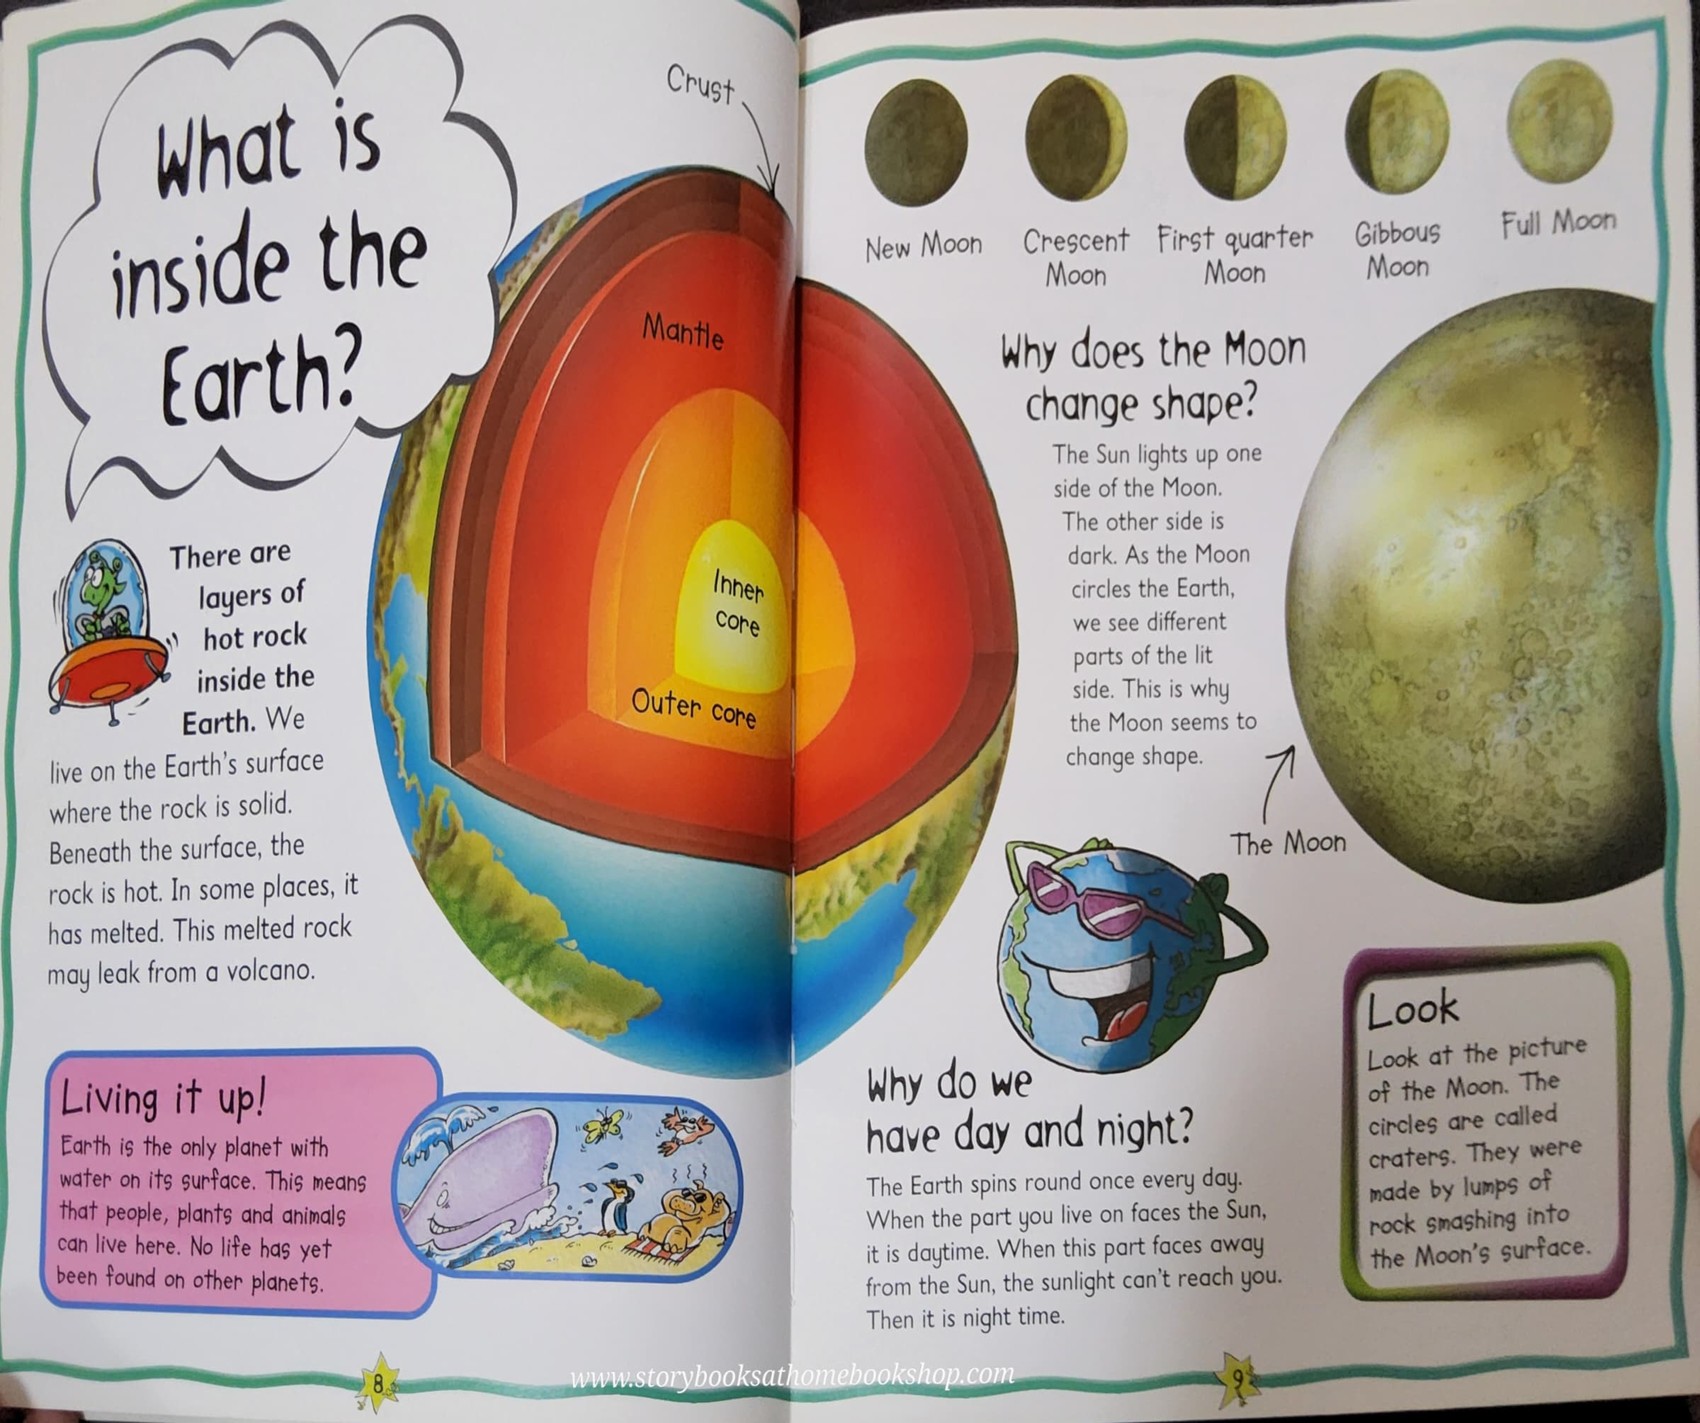 What is
inside the
Earth?
There are
layers of
hot rock
inside the
Earth. We
live on the Earth's surface
where the rock is solid.
Beneath the surface, the
rock is hot. In some places, it
has melted. This melted rock
may leak from a volcano.
Crust
Mantle
Inner
core
Outer core
Living it up!
Earth is the only planet with
water on its surface. This means
that people, plants and animals
can live here. No life has yet
been found on other planets.
8
New Moon
Crescent
Moon
First quarter
Moon
Gibbous
Moon
Full Moon
Why does the Moon
change shape?
The Sun lights up one
side of the Moon.
The other side is
dark. As the Moon
circles the Earth,
we see different
parts of the lit
side. This is why
the Moon seems to
change shape.
The Moon
Why do we
have day and night?
The Earth spins round once every day.
When the part you live on faces the Sun,
it is daytime. When this part faces away
from the Sun, the sunlight can't reach you.
Then it is night time.
Look
Look at the picture
of the Moon. The
circles are called
craters. They were
made by lumps of
rock smashing into
the Moon's surface.
9
www.storybooksathomebookshop.com